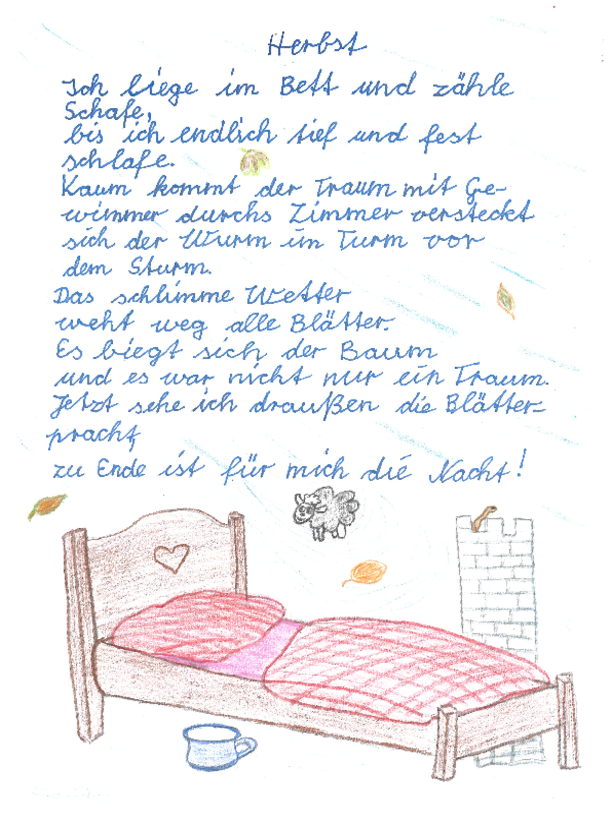 Herbst
Ich liege im Bett und zähle
Schafe,
bis ich endlich tief und fest
schlafe.
Kaum kommt der Traum mit Ge-
wimmer durchs Zimmer versteckt
sich der Wurm im Turm vor
dem Sturm.
Das schlimme Wetter
weht weg alle Blätter.
Es biegt sich der Baum
und es war nicht nur ein Traum.
Jetzt sehe ich draußen die Blätter-
pracht,
zu Ende ist für mich die Nacht!